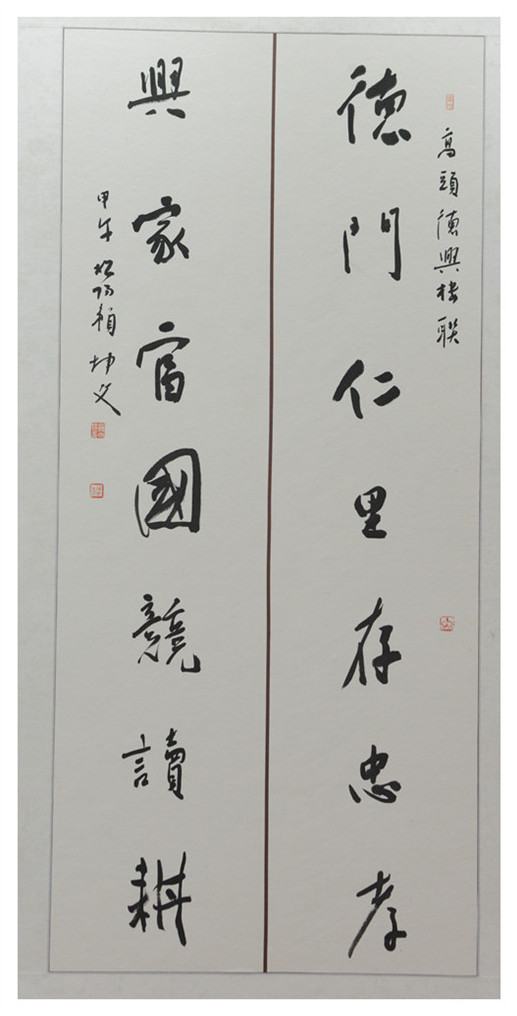 高頭德興樓联
德門仁里存忠孝
興家富國競讀耕
甲午 松陽賴坤文